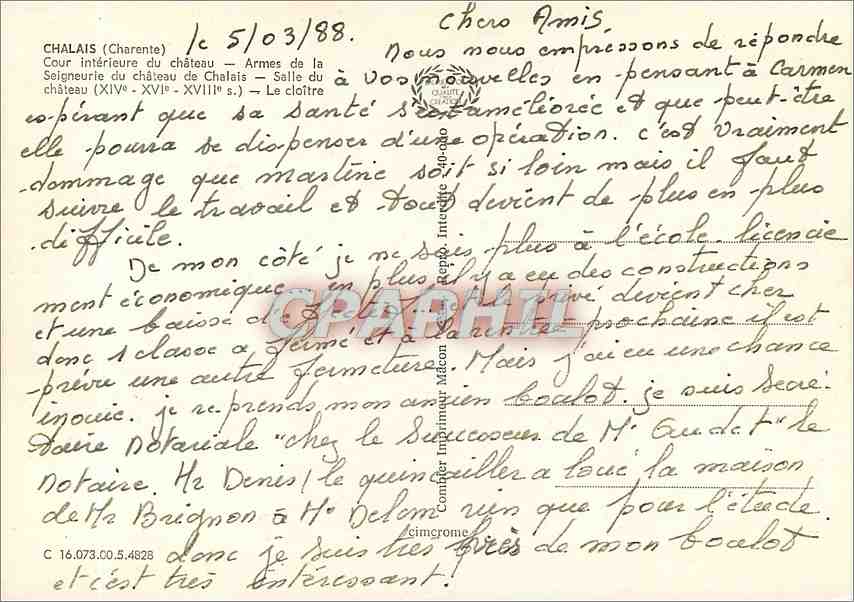 CHALAIS (Charente)
Cour intérieure du château — Armes de la
Seigneurie du château de Chalais — Salle du
château (XIVe - XVIe - XVIIIe s.) — Le cloître
le 5/03/88.
Chers Amis
Nous nous empressons de répondre
à vos nouvelles en pensant à Carmen
espérant que sa santé s'est améliorée et que peut-être
elle pourra se dispenser d'une opération. c'est vraiment
dommage que martine soit si loin mais il faut
suivre le travail et tout devient de plus en plus
difficile.
De mon côté je ne suis plus à l'école. licencie
ment économique, en plus il y a eu des constructions
et une baisse d'effectif et le privé devient cher
donc 1 classe a fermé et à la rentrée prochaine il est
prévu une autre fermeture. Mais j'ai eu une chance
inouie. je reprends mon ancien boulot. je suis secré-
taire Notariale "chez le successeur de Me Gudet" le
Notaire. Mr Denis (le quincailler a loué la maison
de Mr Brignon à Me Delom rien que pour l'étude
donc je suis très près de mon boulot
et c'est très intéressant.
C 16.073.00.5.4828
Combier Imprimeur Mâcon
Repro. Interdite
cimcrome
QUALITÉ
CREATION
CPARHIL